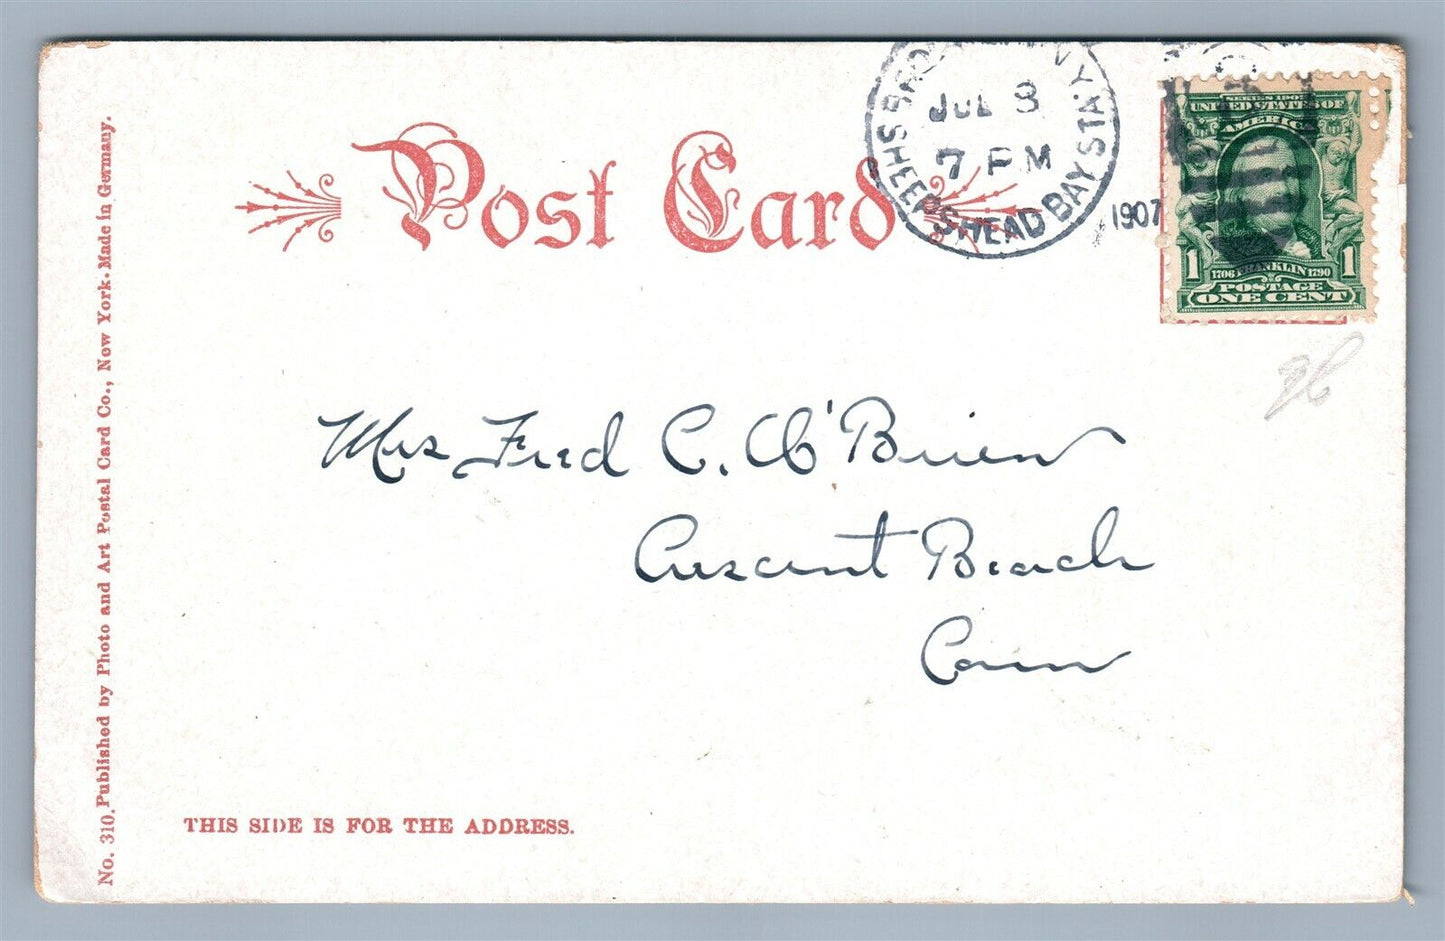 Post Card
SHEEPSHEAD BAY STA.
JUL 3
7 PM
1907
SERIES 1902
UNITED STATES OF
AMERICA
1706 FRANKLIN 1790
1 1
POSTAGE
ONE CENT
Mrs Fred C. O'Brien
Crescent Beach
Conn
THIS SIDE IS FOR THE ADDRESS.
No. 310. Published by Photo and Art Postal Card Co., New York. Made in Germany.